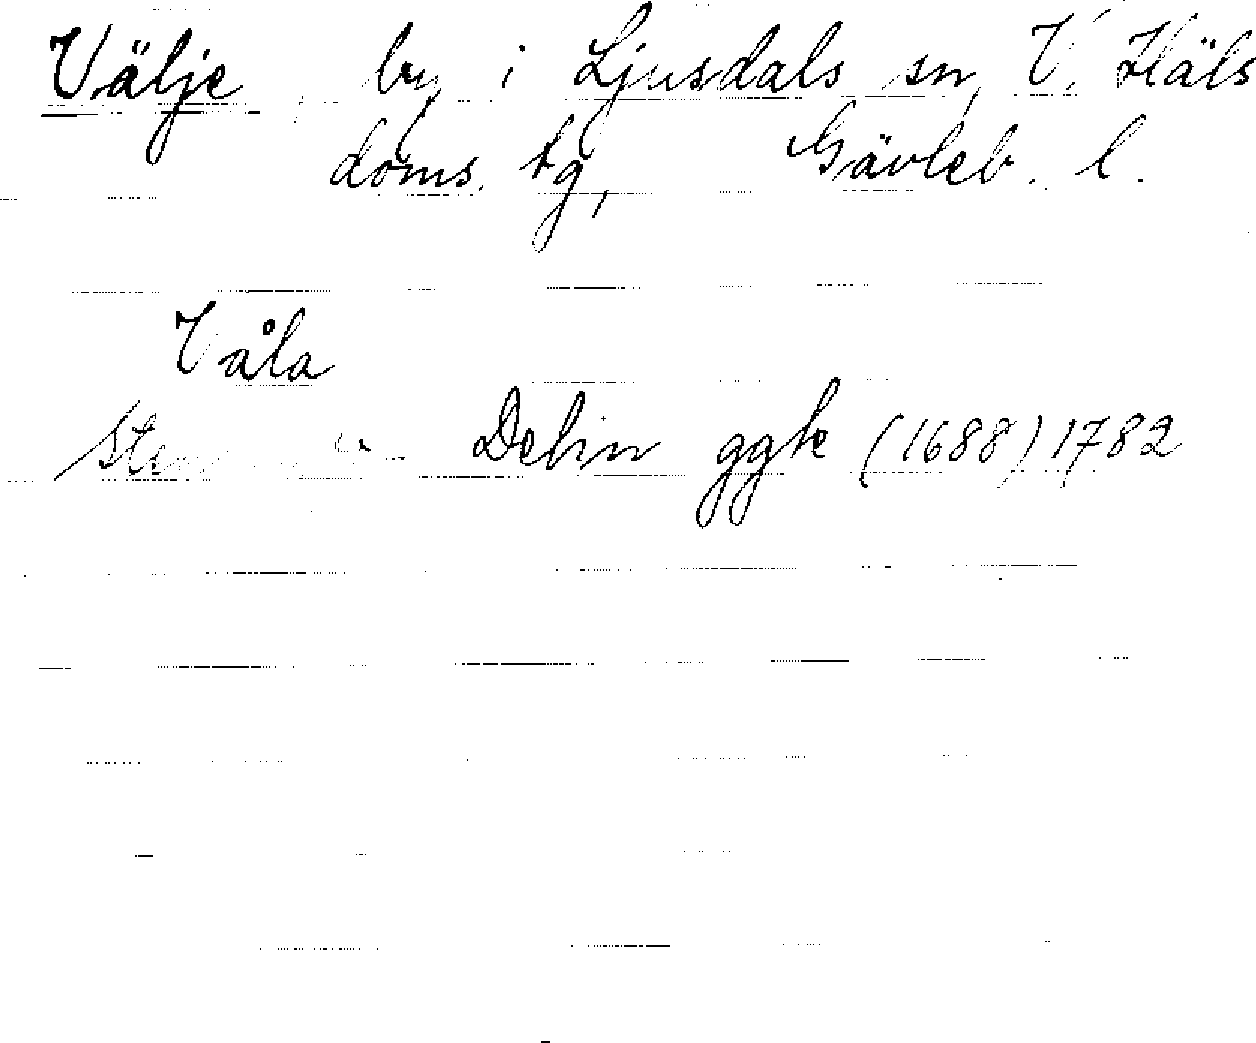 Välje, by i Ljusdals sn, V. Häls
doms. tg, Gävleb. l.
Våla
Delin ggk (1688) 1782